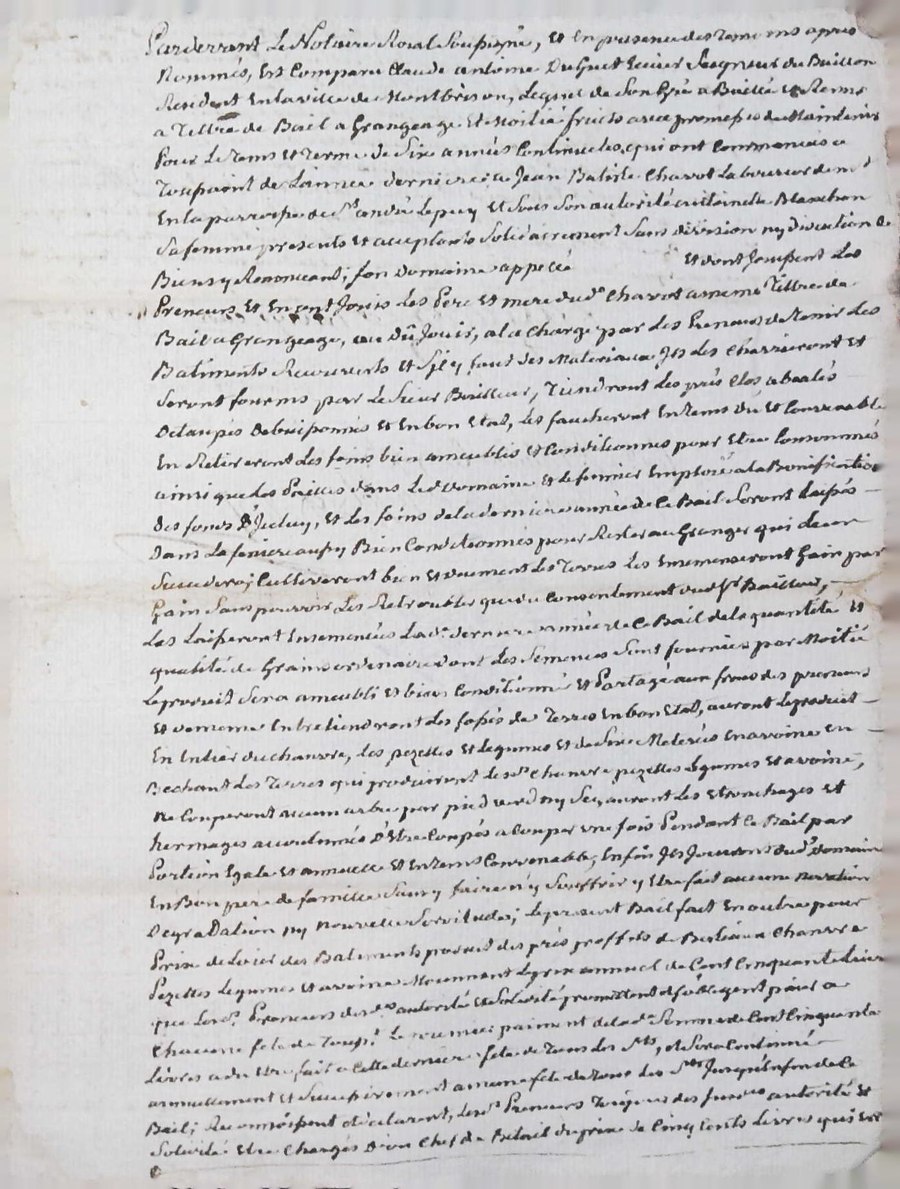 Pardevant Le Notaire Royal Soussigné, Et En presence des temoins apres
Nommés, Est Comparu Claude antoine Duguet Ecuier Seigneur du Buillon
Resident En la ville de Montbrison, Lequel de Son Gré a Baillé Et Remis
a Tiltre de Bail a Grangeage Et Moitié fruits avec promesse de Maintenir
Pour Le tems Et terme de Six années Continuelles, qui ont Commencées a
Toussaint de L'année derniere a Jean Batiste Chavot Laboureur dem.t
En la parroisse de S.t andré Le puy Et Sous Son autorité a Blanchon
Sa femme presents Et acceptants Solidairement Sans division ny discution de
Biens y Renonceant; Son Domaine appellé Et dont Jouissent Les
Preneurs Et En ont Jouis Les Pere Et mere dud.t Chavot a meme Tiltre de
Bail a Grangeage, ou Dû Jouir, a la Charge par Les Preneurs de tenir Les
Batiments Recouverts Et S'il y faut des Materiaux Jls Les Charrieront Et
Seront fournis par Le Sieur Bailleur, Tiendront Les prés Clos, abealés
Detaupés Debuissonnés Et En bon Etat, Les faucheront En tems dû Et Convenable
En Retireront Les foins bien ameublis Et Conditionnés pour Etre Consommés
ainsi que Les Pailles dans Led.t Domaine Et Le fumier Emploié a la Bonification
des fonds D'Jceluy, Et Les foins de la derniere année de Ce Bail Seront Laissés
Dans La feniere aussy Bien Conditionnés pour Rester au Granger qui Leur
Succedera; Cultiveront bien Et duement Les Terres Les Ensemenceront Gain par
Gain Sans pouvoir Les Retroubler que du Consentement dud.t S.r Bailleur,
Les Laisseront Ensemencées La d.e derniere année de Ce Bail de la quantité Et
qualité de Grains ordinaire dont Les Semences Sont fournies par Moitié
Le produit Sera ameubli Et bien Conditionné Et Partagé aux frais des preneurs
Et de meme Entretiendront Les fossés de Terres En bon Etat, auront Le produit
En Entier du chanvre, Les pezettes Et Legumes Et de Six Meterés En avoine En
Bechant Les Terres qui produiront Lesd.s Chanvre pezettes Legumes Et avoine,
Ne Couperont aucun arbre par pied verd ny Sec, auront Les Etronchages Et
hermages accoutumés D'Etre Coupés a Couper une fois Pendant Ce Bail par
Portion Egale Et annuelle Et En tems Convenable; Enfin Jls Jouiront dud.t Domaine
En Bon pere de famille Sans y faire n'y Souffrir y Etre fait aucune
Degradation ny Nouvelle Servitude; Le present Bail fait En outre pour
Prix de Loier des Batiments produit des prés proffits de Bestiaux Chanvre
Pezettes Legumes Et avoine Moiennant Le prix annuel de Cent Cinquante Livres
que Lesd.s Preneurs desd.s autorité Et Solidité promettent Et s'obligent païer a
Chacune fete de Touss.t Le premier paiment de la d.e Somme de Cent Cinquante
Livres a du Etre fait a Cette derniere fete de Tous Les S.ts, Et Sera Continué
annuellement Et Successivement a meme fete de Tous Les S.ts Jusqu'a fin de Ce
Bail; Reconnoissent Et declarent, Lesd.s Preneurs Toujours des Susd.es autorité Et
Solidité Etre Chargés D'un Chef de Betail du prix de Cinq Cents Livres qui Est